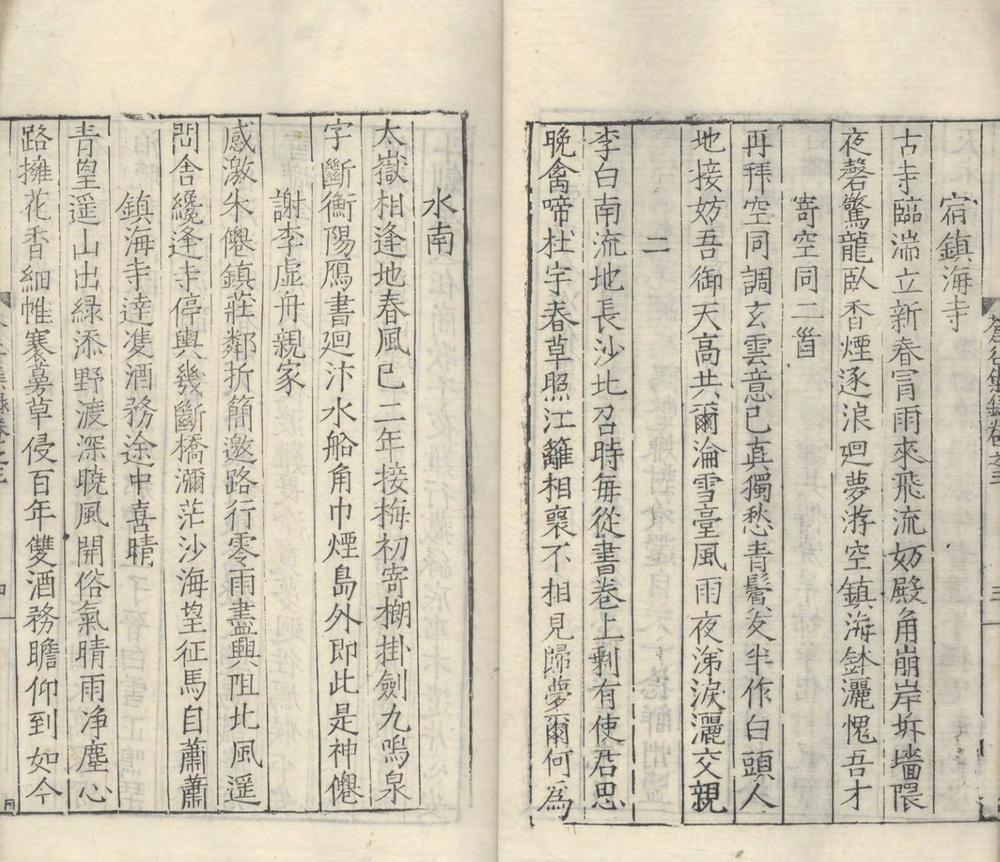 宿鎮海寺
古寺臨湍立新春冐雨來飛流妨殿角崩岸拆墻隈
夜磬驚龍臥香煙逐浪廻夢游空鎮海鉢灑愧吾才
寄空同二首
再拜空同調玄雲意已真獨愁青鬢友半作白頭人
地接妨吾御天高共爾淪雪臺風雨夜涕淚灑交親
二
李白南流地長沙北召時每從書卷上剩有使君思
晚禽啼杜宇春草照江籬相襄不相見歸夢爾何為
水南
太嶽相逢地春風已二年接梅初寄櫬掛劍九鳴泉
字斷衡陽鴈書廻汴水船角巾煙島外即此是神僊
謝李虛舟親家
感激朱僊鎮莊鄰折簡邀路行零雨盡興阻北風遥
問舎纔逢寺停輿幾斷橋瀰茫沙海望征馬自蕭蕭
鎮海寺達雙酒務途中喜晴
青望遥山出緑添野渡深曉風開俗氣晴雨净塵心
路擁花香細帷褰募草侵百年雙酒務瞻仰到如今